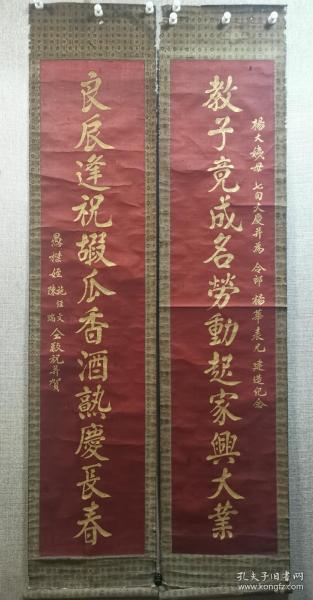 楊大姨母 七旬大慶并為 令郎 楊華表兄 建造紀念
教子竟成名勞動起家興大業
良辰逢祝嘏瓜香酒熟慶長春
愚樸姪 施經文
陳瑞 仝敬祝并賀
孔夫子旧书网